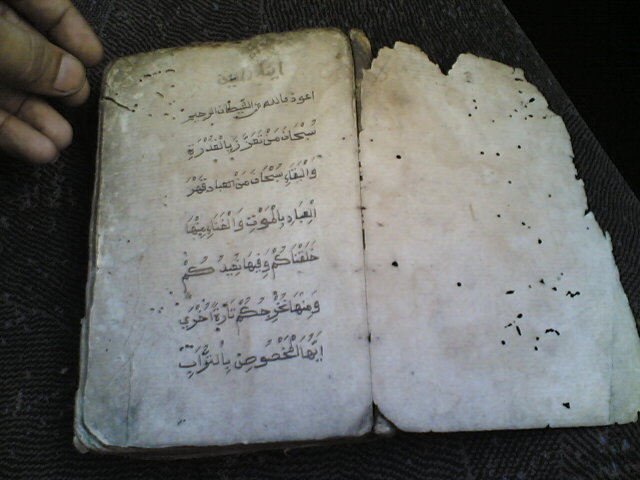 اعوذ بالله من الشيطان الرجيم
سُبْحَانَ مَنْ تَعَزَّزَ بِالْقُدْرَةِ
وَالْبَقَاءِ سُبْحَانَ مَنْ قَهَرَ
الْعِبَادِ بِالْمَوْتِ وَالْفَنَاءِ مِنْهَا
خَلَقْنَاكُمْ وَفِيهَا نُعِيدُ كُمْ
وَمِنْهَا نُخْرِجُكُمْ تَارَةً أُخْرَي
اَيُّهَا الْمَخْصُوصِ بِالتُّرَابِ